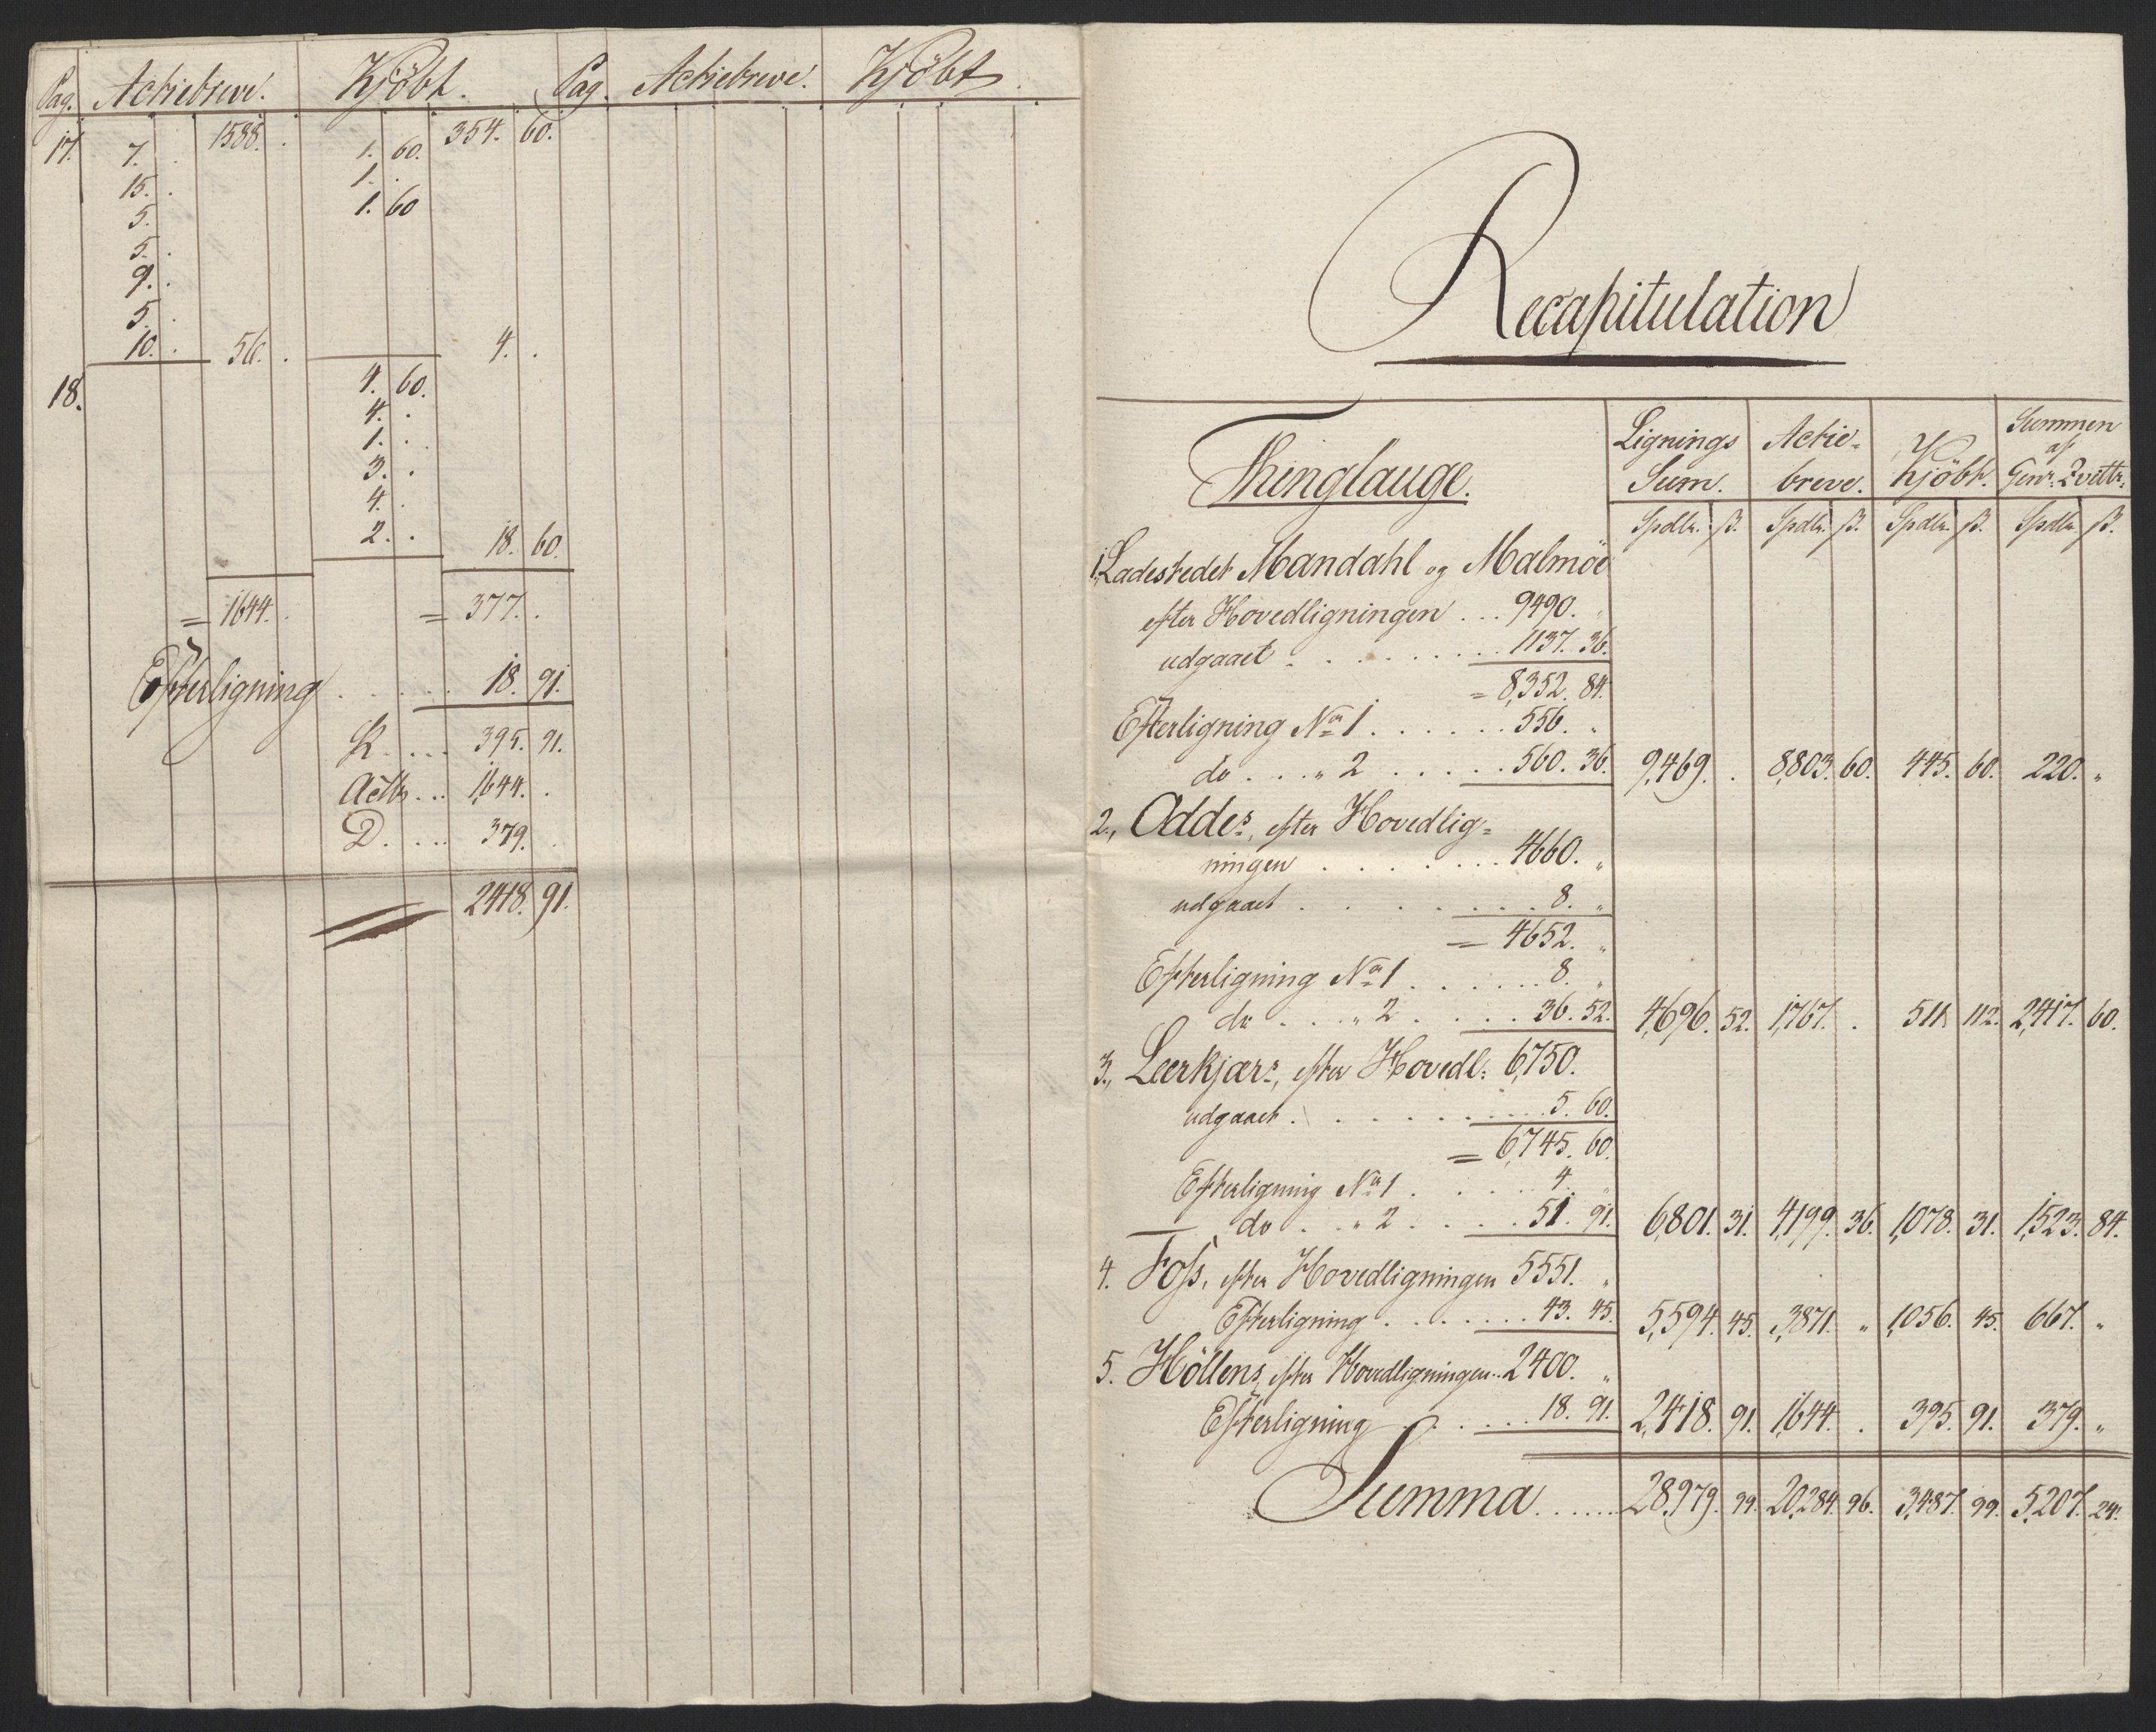 Pag. Actiebreve. Kjöbt. Pag. Actiebreve. Kjöbt.
17. 7. . 1588. . 1. 60. 354. 60.
15. . 1. .
5. 1. 60
5. .
9. .
5. .
10. . 56. . 4. .
18. 4. 60.
4. .
1. .
3. .
4. .
2. . 18. 60.
= 1644. . = 377. .
Efterligning . . . . . 18. 91.
K. . . . 395. 91.
Actb. . . 1,644. .
D. . . . 379. .
2418. 91.
Recapitulation
Thinglauge. Lignings Sum. Actie-breve. Kjöbt. Summen af
Spdlr. ß. Spdlr. ß. Spdlr. ß. Spdlr. ß.
1, Ladestedet Mandahl og Malmöe
efter Hovedligningen . . . 9490. "
udgaaet . . . . . . . . . 1137. 36.
= 8,352. 84.
Efterligning No 1 . . . . . . 556. "
do . . . " 2 . . . . . 560. 36. 9,469. . 8,803. 60. 445. 60. 220. "
2., Oddes, efter Hovedlig=
ningen . . . . . . . 4660. "
udgaaet . . . . . . . . 8. "
= 4652. "
Efterligning No 1 . . . . . . 8. "
do . . . " 2 . . . . . 36. 52. 4,696. 52. 1,767. . 511. 112. 2,417. 60.
3., Leerkjærs, efter Hovedl: 6,750.
udgaaet . . . . . . . . 5. 60.
= 6,745. 60.
Efterligning No 1 . . . . . 4. "
do . . " 2 . . . . 51. 91. 6,801. 31. 4,199. 36. 1,078. 31. 1,523. 84.
4. Foss, efter Hovedligningen 5551. "
Efterligning . . . . . . . 43. 45. 5,594. 45. 3,871. " 1,056. 45. 667. "
5. Höllens, efter Hovedligningen . . 2400. "
Efterligning . . . . . 18. 91. 2,418. 91. 1,644. . 395. 91. 379. "
Summa . . . . . . 28,979. 99. 20,284. 96. 3,487. 99. 5,207. 24.